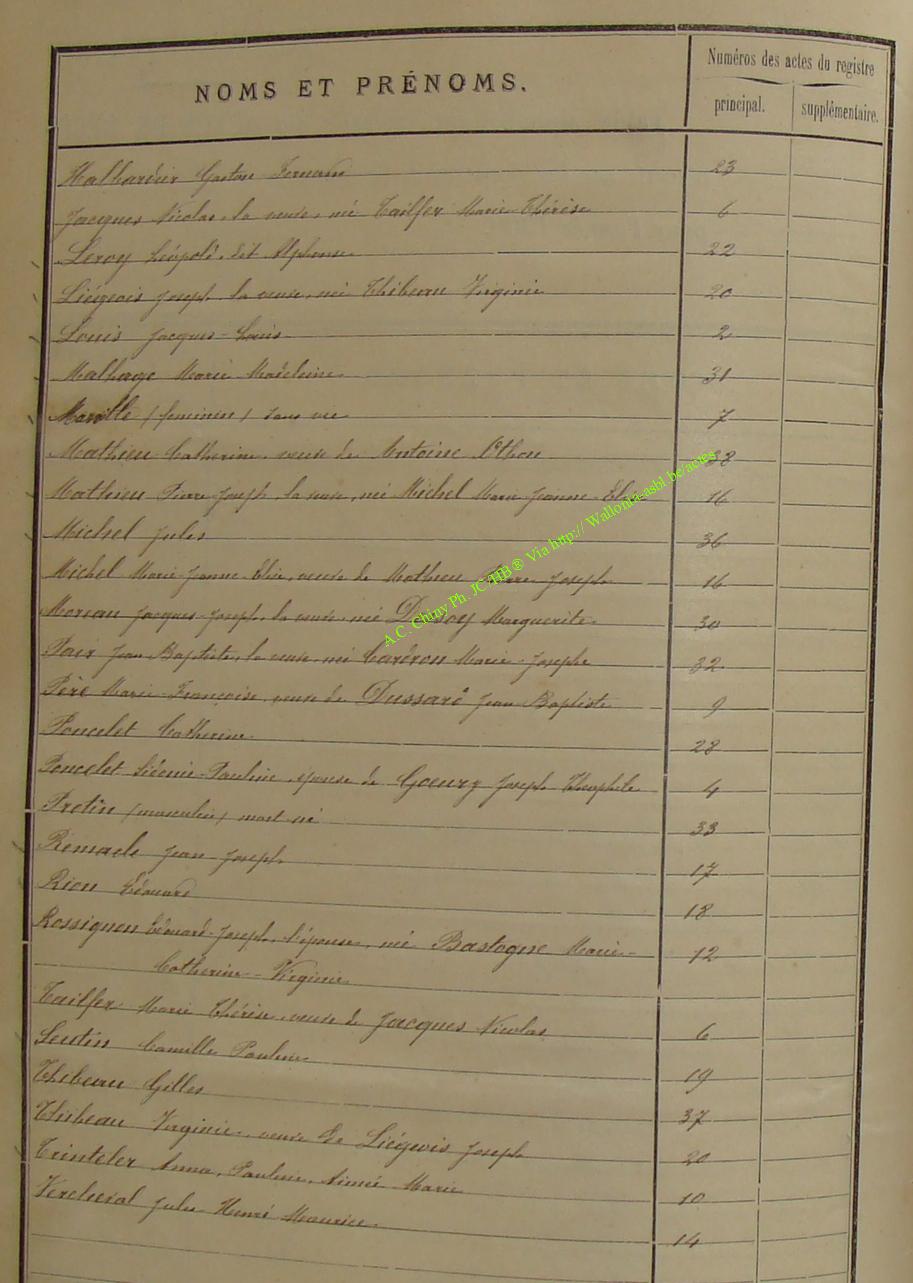 NOMS ET PRÉNOMS.
Numéros des actes du registre
principal. supplémentaire.
Halbardier Gaston Fernand 23
Jacques Nicolas, la veuve, née Tailfer Marie-Thérèse 6
Leroy Léopold, dit Alphonse 22
Liégeois Joseph, la veuve, née Thibeau Virginie 20
Louis Jacques-Louis 2
Malhage Marie Madeleine 31
Marville (féminin) sans vie 7
Mathieu Catherine, veuve de Antoine Othon 38
Mathieu Pierre-Joseph, la veuve, née Michel Marie-Jeanne-Elise 16
Michel Jules 36
Michel Marie-Jeanne-Elise, veuve de Mathieu Pierre Joseph 16
Moreau Jacques-Joseph, la veuve, née Dussoy Marguerite 30
Pair Jean Baptiste, la veuve, née Cardron Marie-Josephe 32
Père Marie-Françoise, veuve de Dussard Jean Baptiste 9
Poncelet Catherine 28
Poncelet Léonie-Pauline, épouse de Goeury Joseph Théophile 4
Protin (masculin) mort né 33
Remacle Jean Joseph 17
Rion Edouard 18
Rossignon Edouard-Joseph, l'épouse, née Bastogne Marie- 12
Catherine-Virginie
Tailfer Marie Thérèse, veuve de Jacques Nicolas 6
Sentin Camille Pauline 19
Thibeau Gilles 37
Thibeau Virginie, veuve de Liégeois Joseph 20
Trinteler Anna, Pauline, Aimée Marie 10
Vercheval Jules Henri Maurice 14
A.C. Chiny Ph. JC HB ® Via http:// Wallonia-asbl.be/actes